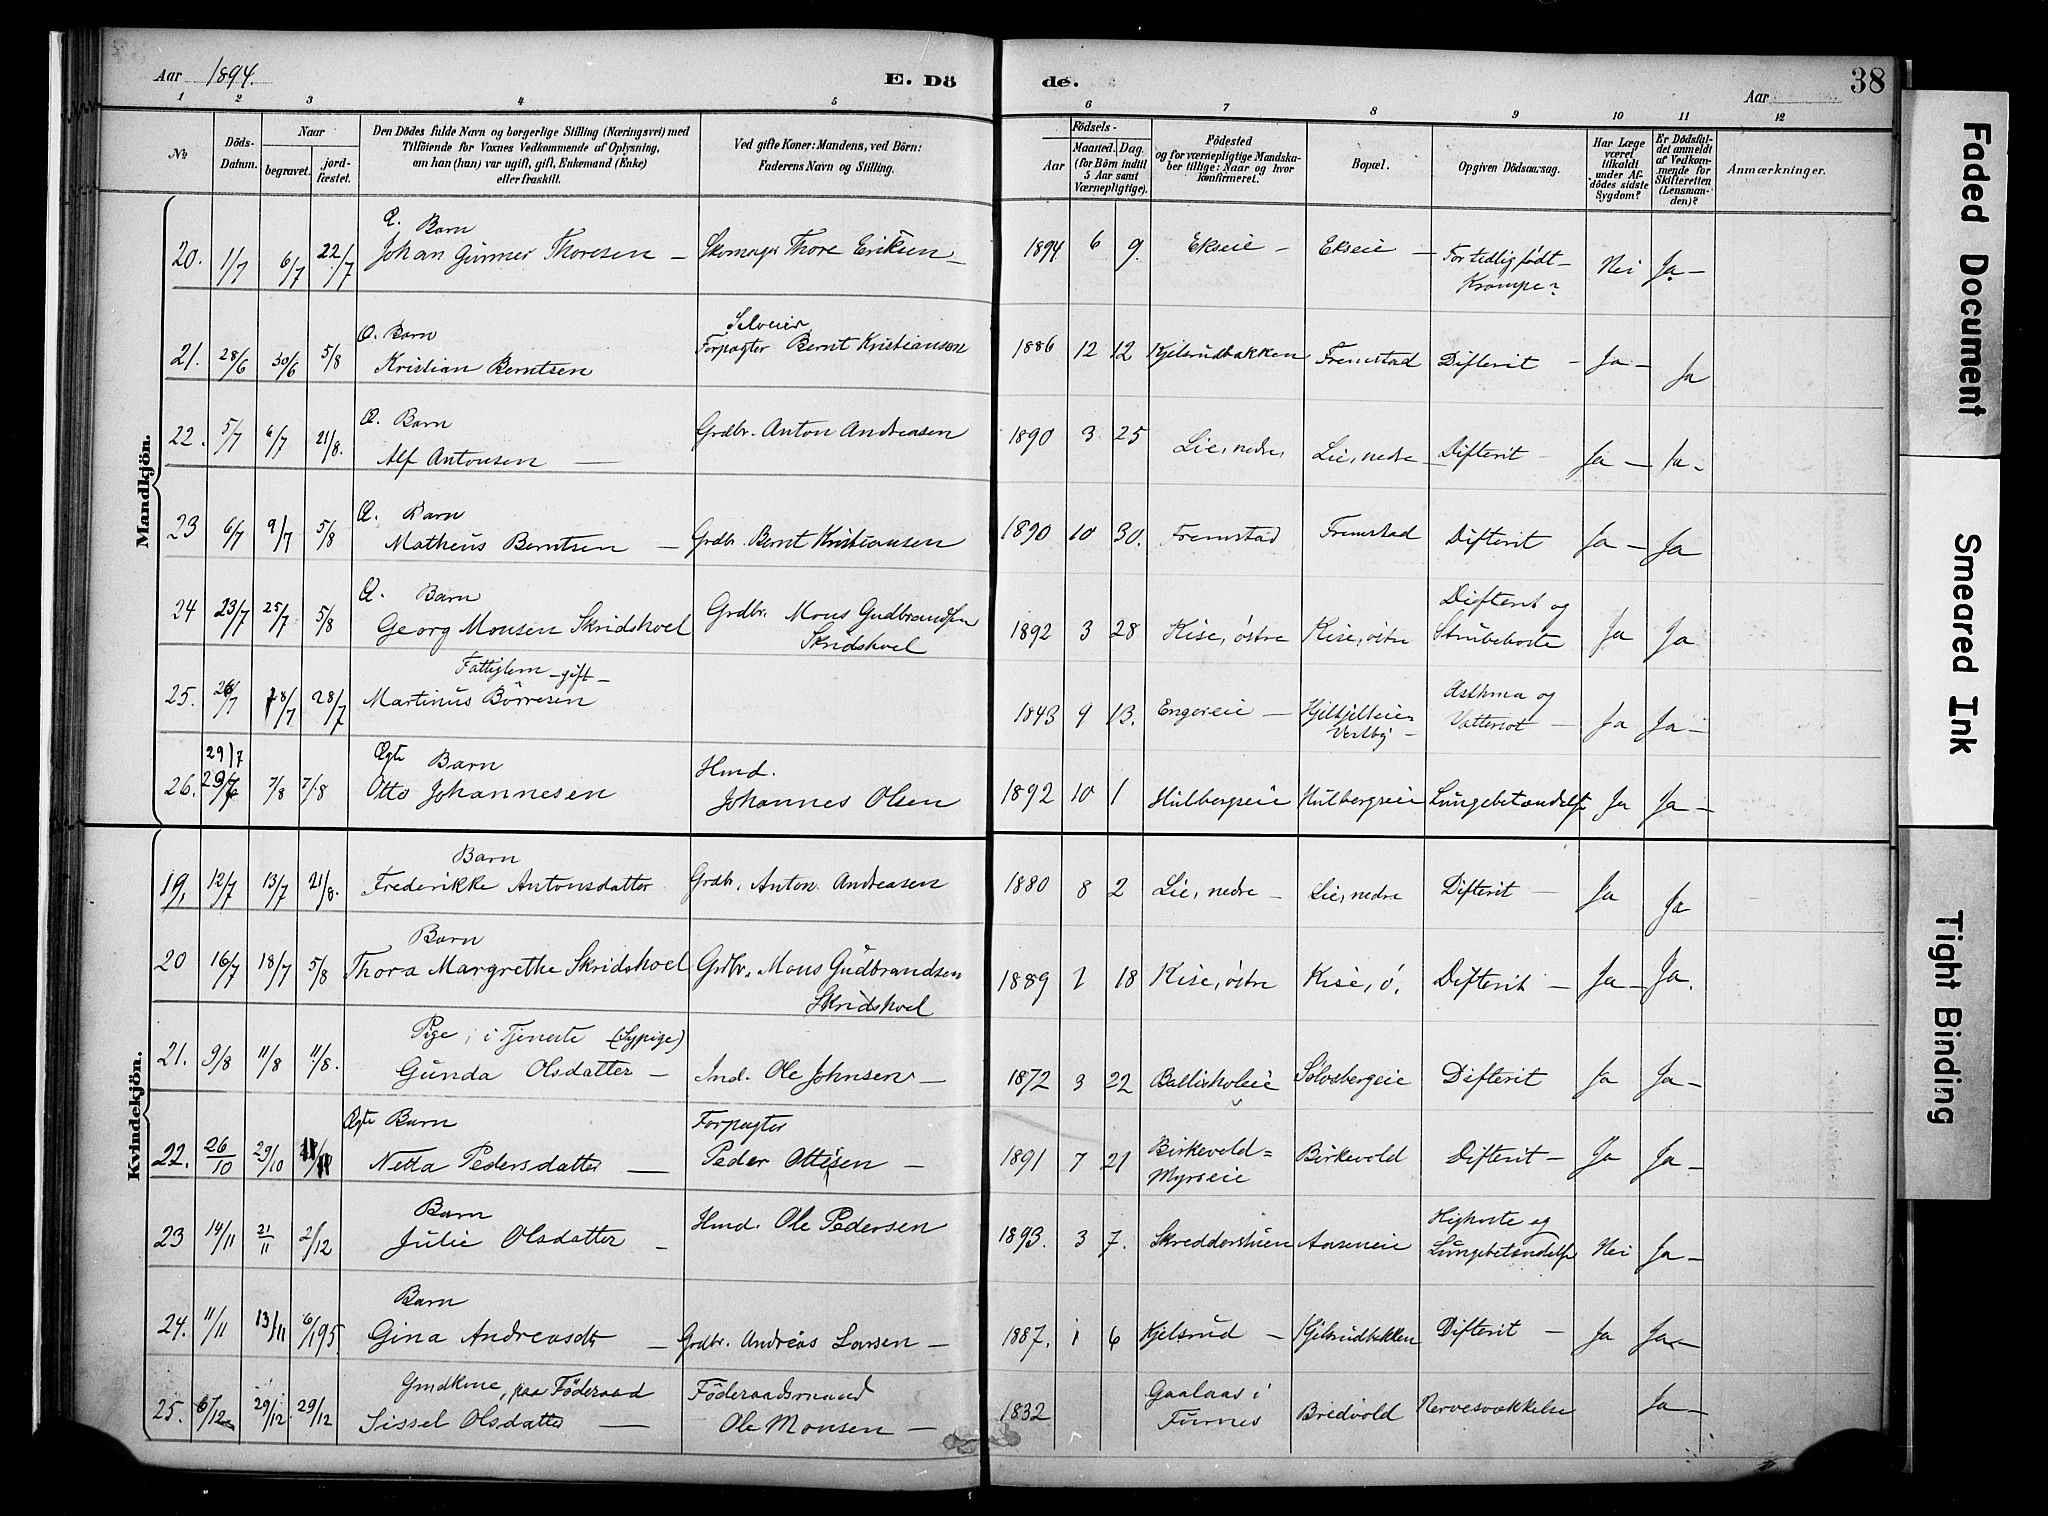 Aar 1894.
E. Dö
de.
Aar
38
1 2 3 4 5 6 7 8 9 10 11 12
No
Döds-Datum.
Naar
begravet.
jord-fæstet.
Den Dödes fulde Navn og borgerlige Stilling (Næringsvei) med
Tilföiende for Voxnes Vedkommende af Oplysning,
om han (hun) var ugift, gift, Enkemand (Enke)
eller fraskilt.
Ved gifte Koner: Mandens, ved Börn:
Faderens Navn og Stilling.
Födsels-
Aar
Maaned.
Dag.
(for Börn indtil
5 Aar samt
Værnepligtige).
Födested
og for værnepligtige Mandska-
ber tillige: Naar og hvor
konfirmeret.
Bopæl.
Opgiven Dödsaarsag.
Har Læge
været
tilkaldt
under Af-
dödes sidste
Sygdom?
Er Dödsfal-
det anmeldt
af Vedkom-
mende for
Skifteretten
(Lensman-
den)?
Anmærkninger.
Mandkjön.
Æ. Barn
20. 1/7 6/7 22/7 Johan Gunner Thoresen — Skomager Thore Eriksen — 1894 6 9. Ekseie — Ekseie — For tidlig født — Krampe? Nei Ja —
Æ. Barn Selveier
21. 28/6 30/6 5/8 Kristian Berntsen Forpagter Bernt Kristiansen 1886 12 12 Kjelsrudbakken Fremstad Difterit — Ja — Ja
Æ. Barn
22. 5/7 6/7 21/8. Alf Antonsen — Grdbr. Anton Andreasen 1890 3 25 Lie, nedre, Lie, nedre — Difterit — Ja — Ja —
Æ. Barn
23 6/7 9/7 5/8 Matheus Berntsen — Grdbr. Bernt Kristiansen 1890 10 30. Fremstad Fremstad Difterit Ja — Ja
Æ. Barn
24 23/7 25/7 5/8 Georg Monsen Skridshoel Grdbr. Mons Gudbrandsen Skridshoel 1892 3 28 Kise, østre Kise, østre Difterit og Strubehoste Ja Ja
Fattiglem — gift —
25. 26/7 28/7 28/7 Martinus Börresen 1843 9 13. Engereie — Vestby — Asthma og Vattersot — Ja Ja —
29/7
Ægte Barn
26. 7/8 7/8 Otto Johannesen Hmd. Johannes Olsen 1892 10 1 Hulbergseie Hulbergseie Lungebetændelse Ja Ja —
Kvindekjön.
Barn
19, 12/7 13/7 21/8. Frederikke Antonsdatter Grdbr. Anton Andreasen 1880 8 2 Lie, nedre — Lie, nedre Difterit — Ja Ja
Barn
20 16/7 18/7 5/8 Thora Margrethe Skridshoel Grdbr. Mons Gudbrandsen Skridshoel 1889 1 18 Kise, østre Kise, ø. Difterit — Ja — Ja.
Pige, i Tjeneste (Sypige)
21. 9/8 11/8 11/8. Gunda Olsdatter — Ind. Ole Johnsen — 1872 3 22 Ballisholeie Solvsbergeie Difterit Ja Ja —
Ægte Barn
22. 26/10 29/10 Netta Pedersdatter — Forpagter Peder Ottesen — 1891 7 21 Birkevold= Myrseie Birkevold Difterit — Ja Ja —
Barn
23 14/11 21/11 2/12 Julie Olsdatter — Hmd. Ole Pedersen 1893. 3 7. Skredderstuen Aaseneie Kighoste og Lungebetændelse Nei Ja —
Barn
24. 11/11 13/11 6/1 95. Gina Andreasdtr — Grdbr. Andreas Larsen — 1887. 1 6 Kjelsrud — Kjelsrudbakken Difterit — Ja Ja —
Grndkone, paa Föderaad
25. 6/12 29/12. 29/12 Sissel Olsdatter — Föderaadsmand Ole Monsen — 1832 Gaalaas i Furnes Bredvold Nervesvækkelse Ja —
Faded Document
Smeared Ink
Tight Binding